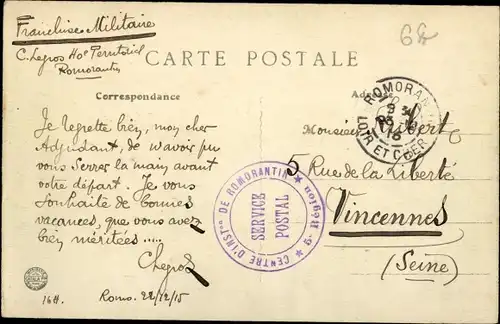 Franchise Militaire
C. Legros Ho^e Territorial
Romorantin
CARTE POSTALE
Correspondance
Adresse
Je regrette bien, mon cher
Adjudant, de n'avoir pu
vous serrer la main avant
votre départ. Je vous
souhaite de bonnes
vacances, que vous avez
bien méritées.....
CLegros
16H. Romo. 22/12/15
Monsieur Albert
5 Rue de la Liberté
Vincennes
(Seine)
ROMORANTIN
LOIR ET CHER
CENTRE D'INSTon DE ROMORANTIN
5e Région
SERVICE
POSTAL